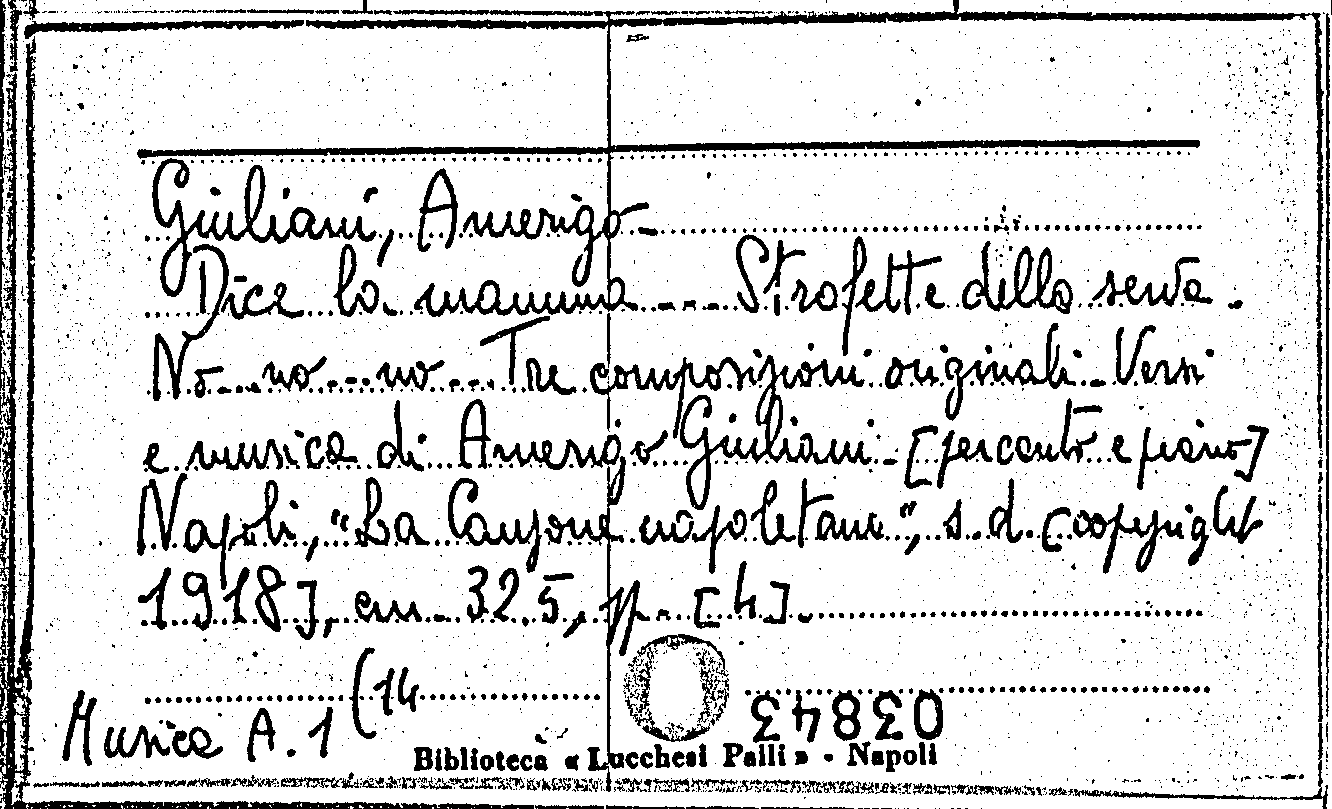 Giuliani, Amerigo -
Dice la mamma .... Strofette della serva .
No....no....no.... Tre composizioni originali - Versi
e musica di Amerigo Giuliani - [per canto e piano]
Napoli, "La Canzone napoletana", s.d. [copyright
1918], cm. 32.5, pp. [4].
Musica A. 1 (14
03843
Biblioteca « Lucchesi Palli » - Napoli